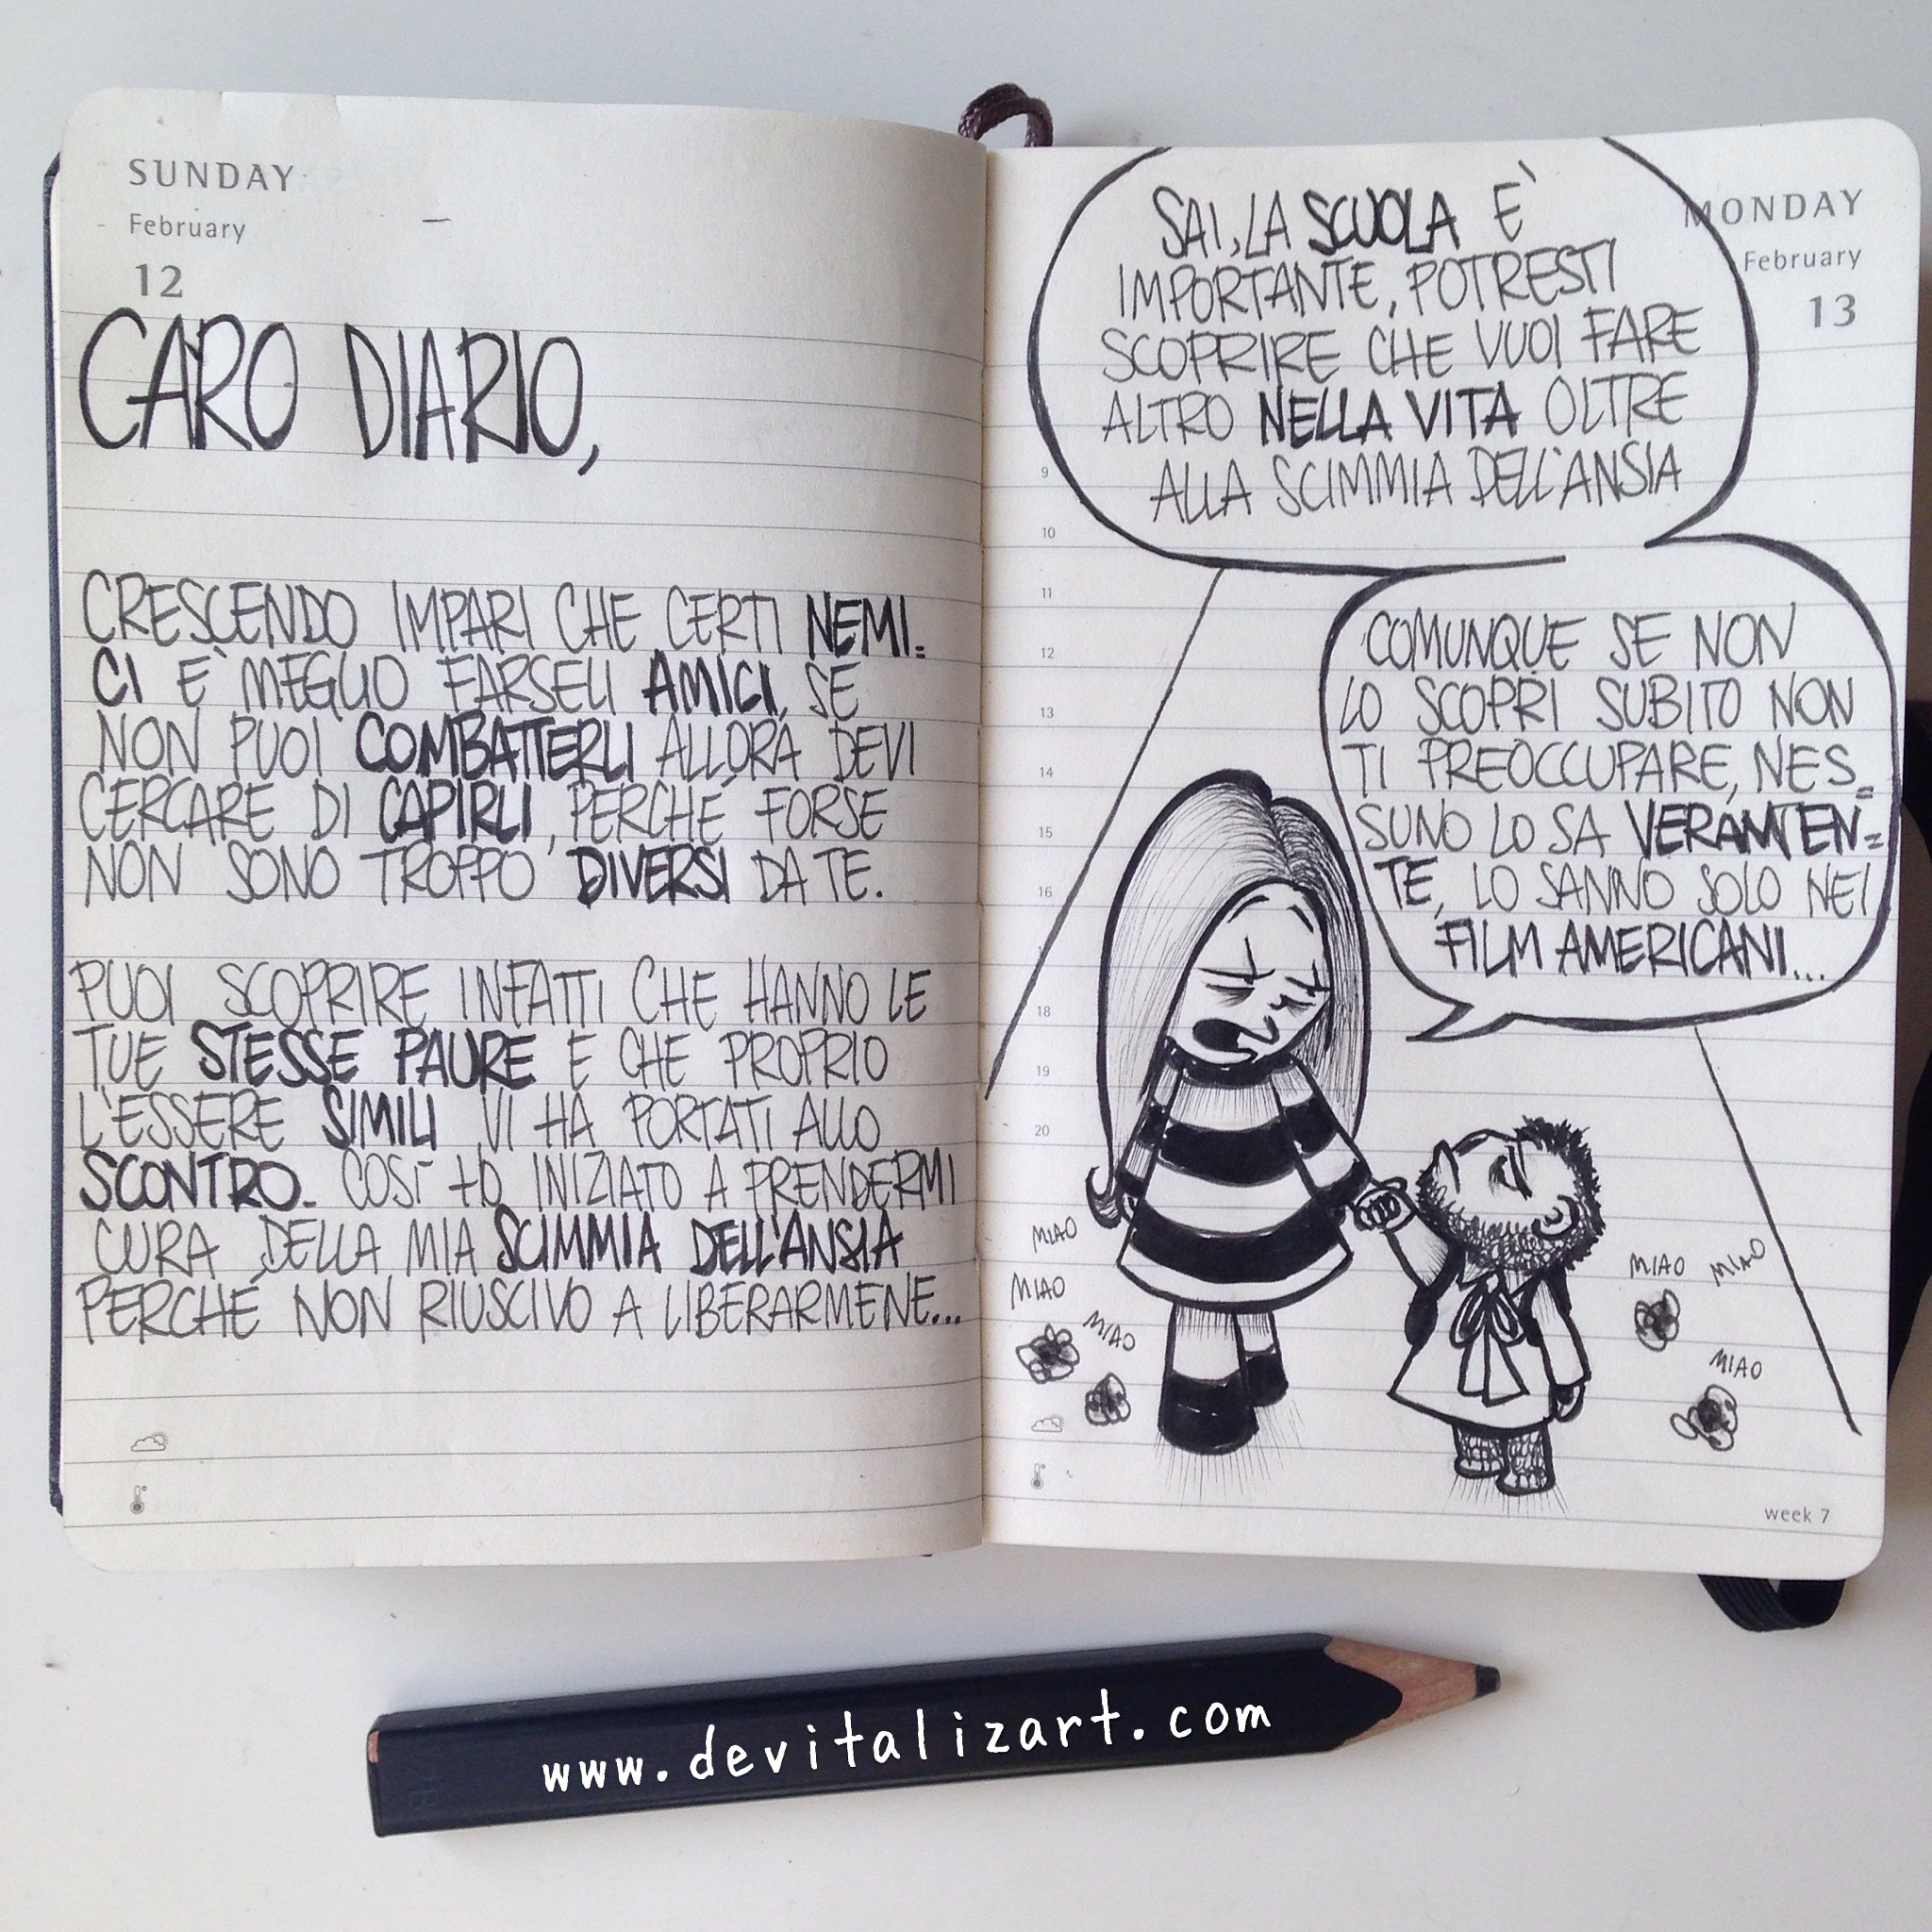 SUNDAY
February
12
CARO DIARIO,
CRESCENDO IMPARI CHE CERTI NEMI=
CI E' MEGLIO FARSELI AMICI, SE
NON PUOI COMBATTERLI ALLORA DEVI
CERCARE DI CAPIRLI, PERCHÉ FORSE
NON SONO TROPPO DIVERSI DA TE.
PUOI SCOPRIRE INFATTI CHE HANNO LE
TUE STESSE PAURE E CHE PROPRIO
L'ESSERE SIMILI VI HA PORTATI ALLO
SCONTRO. COSÌ HO INIZIATO A PRENDERMI
CURA DELLA MIA SCIMMIA DELL'ANSIA
PERCHÉ NON RIUSCIVO A LIBERARMENE...
MONDAY
February
13
SAI, LA SCUOLA È
IMPORTANTE, POTRESTI
SCOPRIRE CHE VUOI FARE
ALTRO NELLA VITA OLTRE
ALLA SCIMMIA DELL'ANSIA
COMUNQUE SE NON
LO SCOPRI SUBITO NON
TI PREOCCUPARE, NES=
SUNO LO SA VERAMEN=
TE, LO SANNO SOLO NEI
FILM AMERICANI...
9
10
11
12
13
14
15
16
17
18
19
20
MIAO
MIAO
MIAO
MIAO
MIAO
MIAO
week 7
www.devitalizart.com
2B